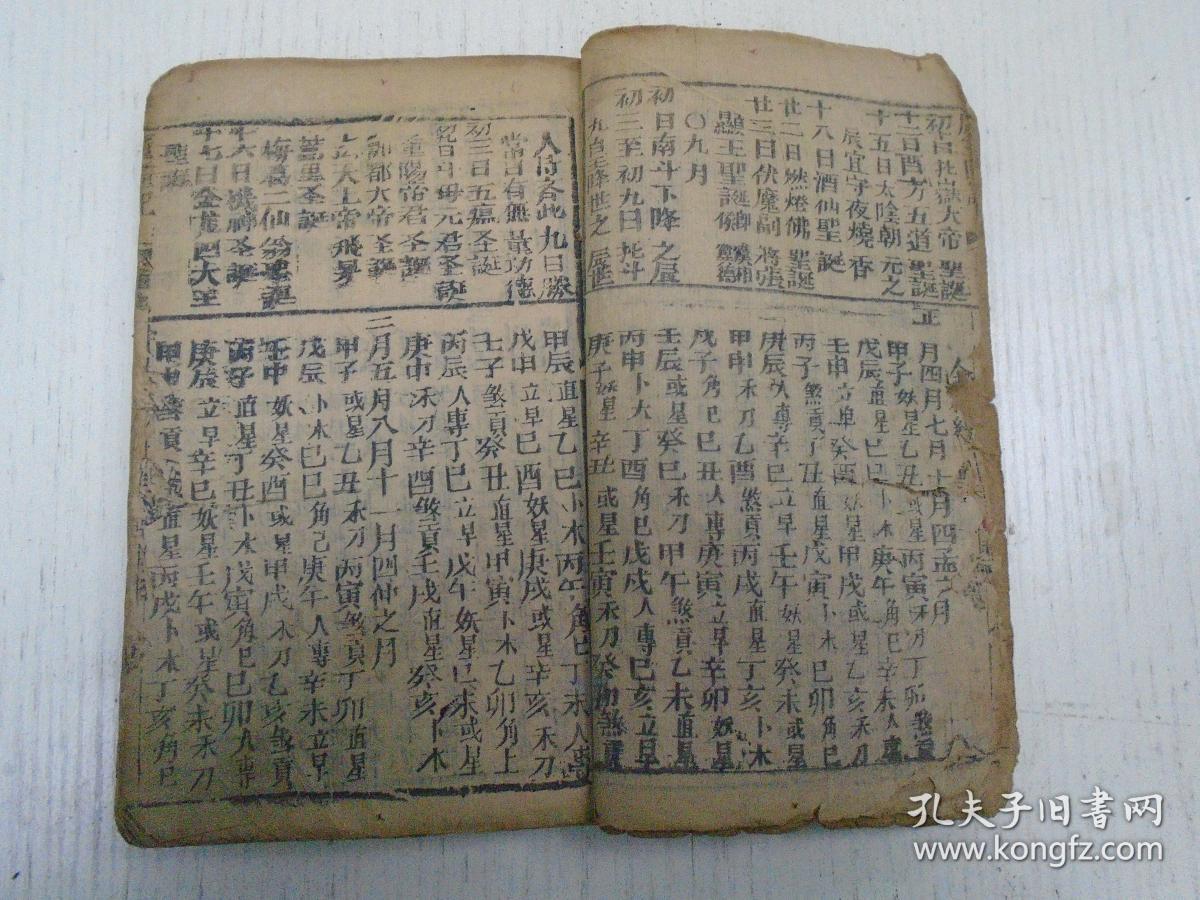 初日北嶽大帝聖誕
十二日酉方五道聖誕
十五日太陰朝元之
辰宜守夜燒香
十八日酒仙聖誕
廿二日燃燈佛聖誕
廿三日伏魔副將張
顯王聖誕
〇九月
初日南斗下降之辰
初三至初九日北斗
九皇降世之辰
月四月七月十月四孟之月
甲子妖星乙丑或星丙寅禾刀丁卯煞貢
戊辰直星己巳卜木庚午角巳辛未人專
壬申立早癸酉妖星甲戌或星乙亥禾刀
丙子煞貢丁丑直星戊寅卜木巳卯角巳
庚辰人專辛巳立早壬午妖星癸未或星
甲申禾刀乙酉煞貢丙戌直星丁亥卜木
戊子角巳巳丑人專庚寅立早辛卯妖星
壬辰或星癸巳禾刀甲午煞貢乙未直星
丙申卜木丁酉角巳戊戌人專巳亥立早
庚子妖星辛丑或星壬寅禾刀癸卯煞貢
人持齋此九日勝
常日有無量功德
初三日五瘟聖誕
初九日斗母元君聖誕
重陽帝君聖誕
酆都大帝聖誕
大帝飛昇
蒿里聖誕
梅葛二仙翁聖誕
十六日機神聖誕
十七日金龍四大王
聖誕
甲辰直星乙巳卜木丙午角巳丁未人專
戊申立早巳酉妖星庚戌或星辛亥禾刀
壬子煞貢癸丑直星甲寅卜木乙卯角上
丙辰人專丁巳立早戊午妖星巳未或星
庚申禾刀辛酉煞貢壬戌直星癸亥卜木
二月五月八月十一月四仲之月
甲子或星乙丑禾刀丙寅煞貢丁卯直星
戊辰卜木巳巳角己庚午人專辛未立早
壬申妖星癸酉或星甲戌禾刀乙亥煞貢
丙子直星丁丑卜木戊寅角巳巳卯人專
庚辰立早辛巳妖星壬午或星癸未禾刀
甲申煞貢乙酉直星丙戌卜木丁亥角巳
孔夫子旧书网
www.kongfz.com